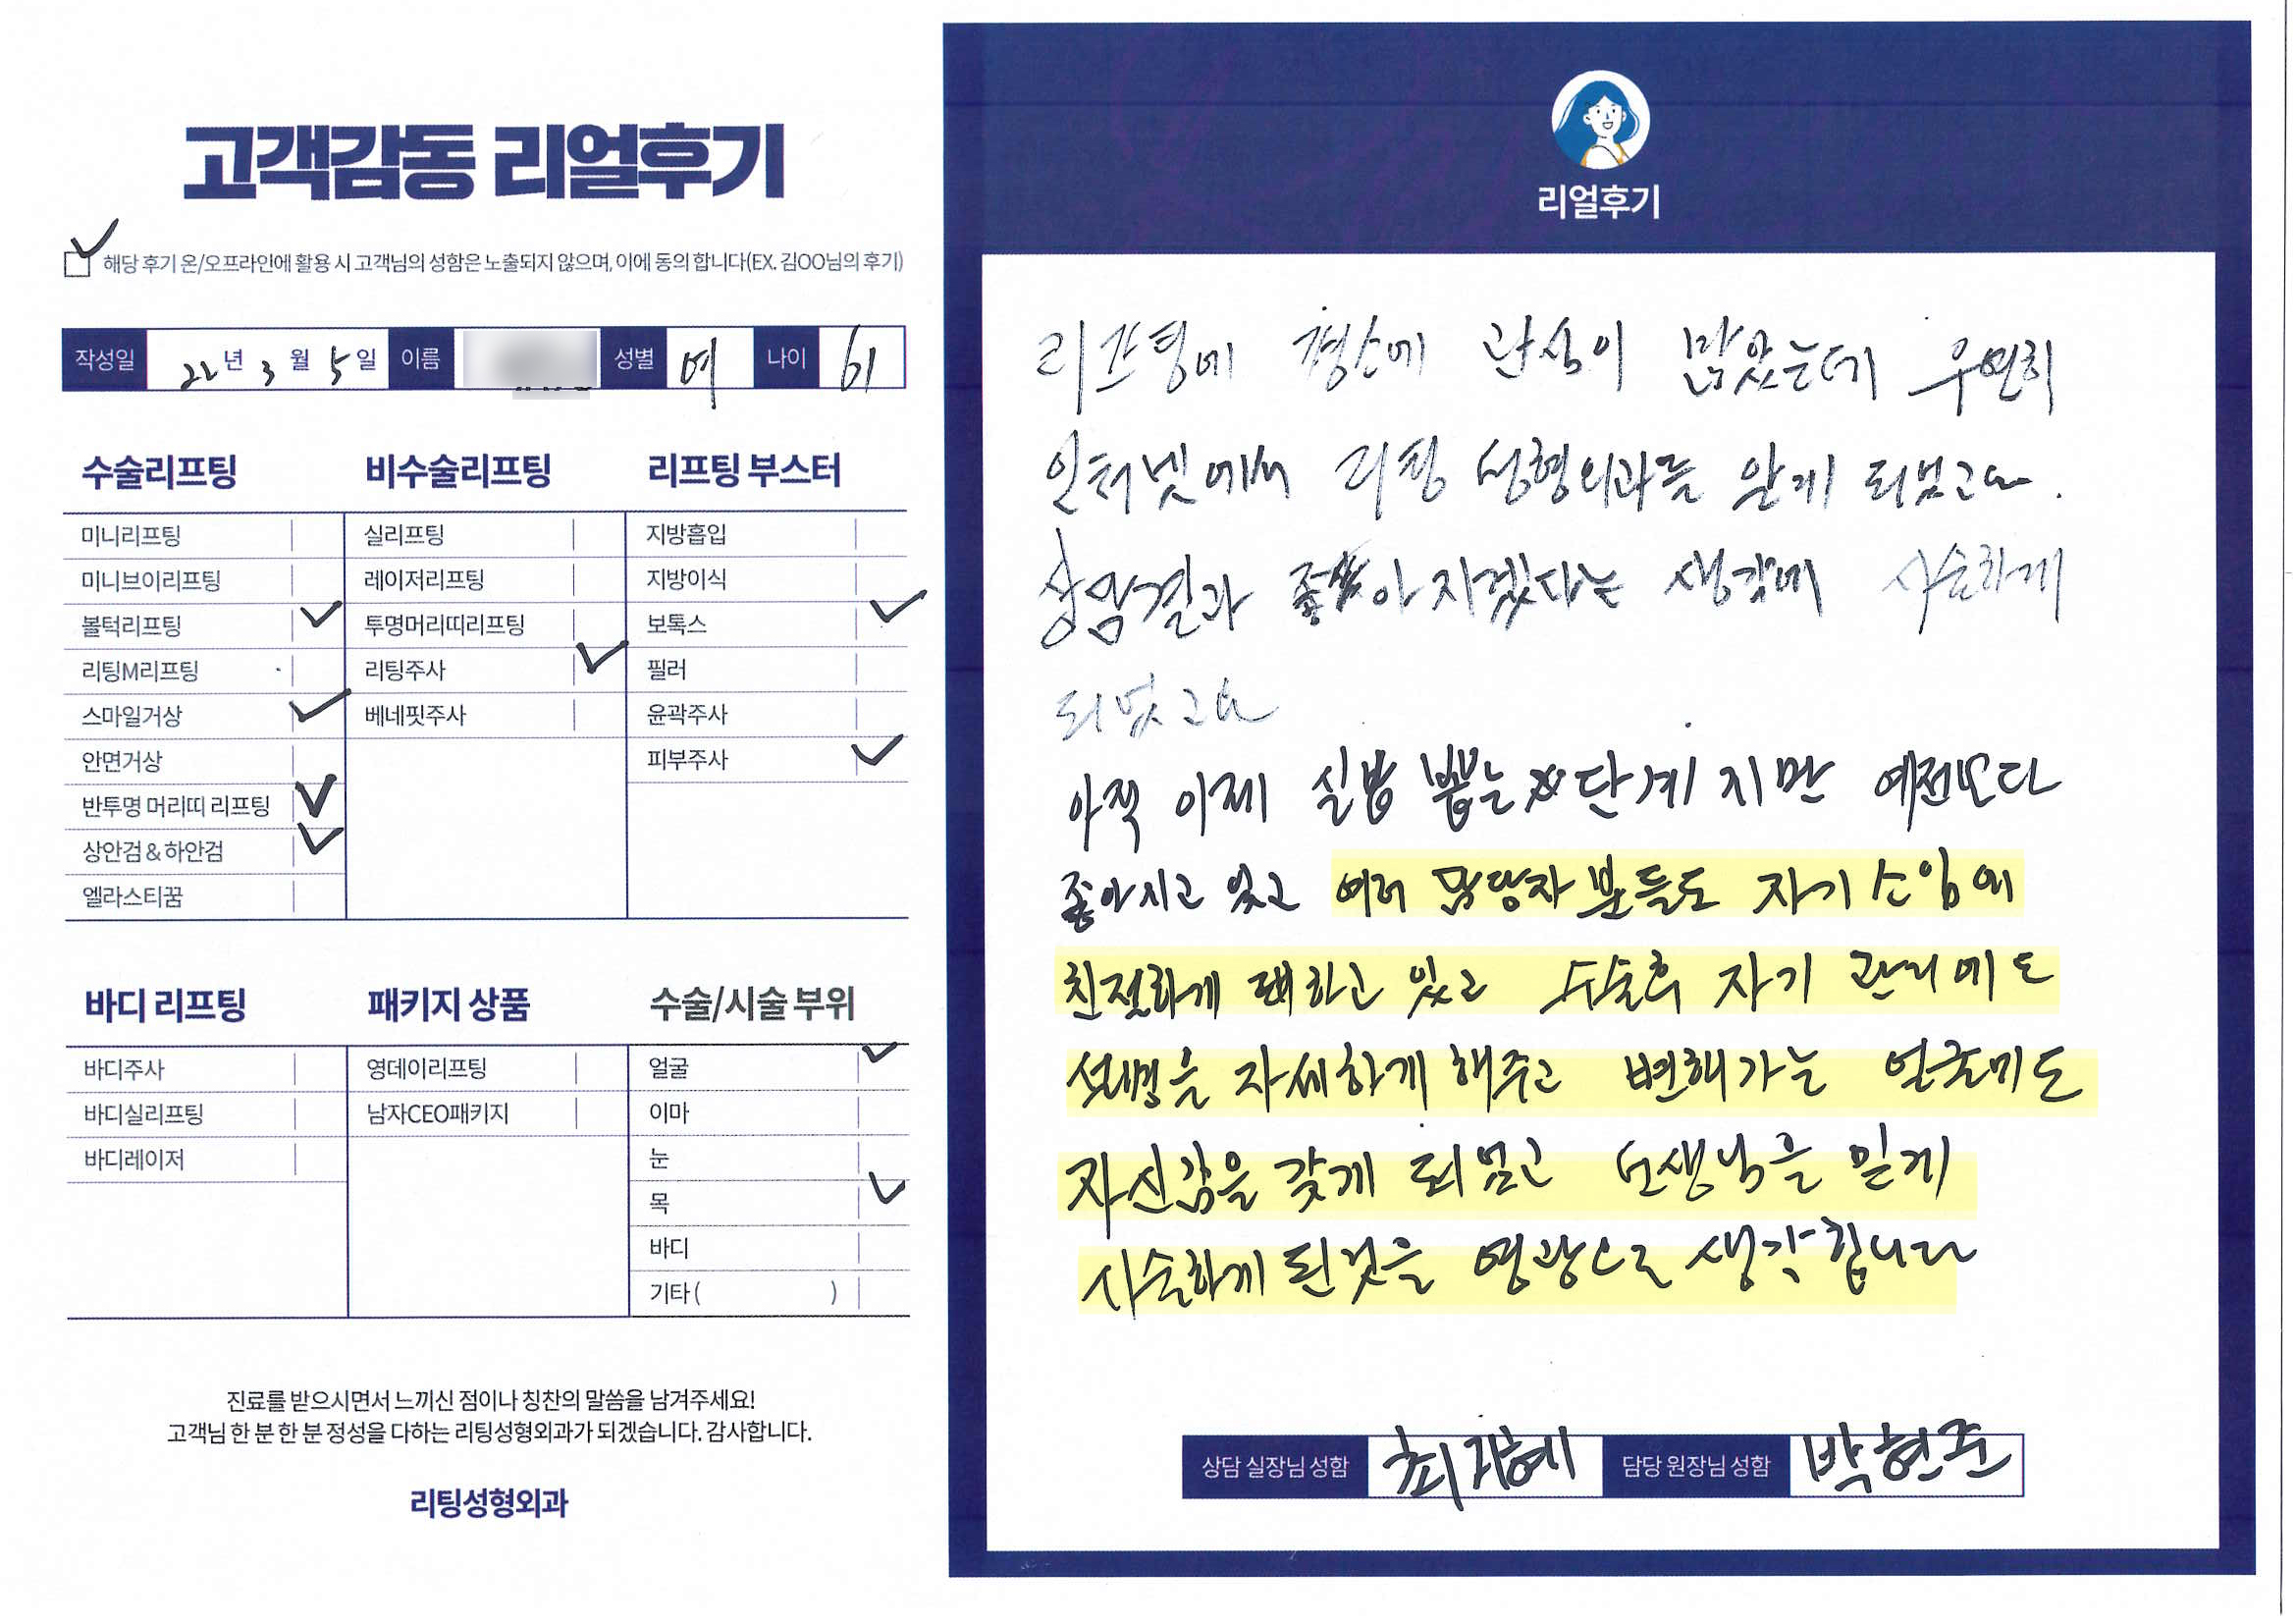 고객감동 리얼후기
해당 후기 온/오프라인에 활용 시 고객님의 성함은 노출되지 않으며, 이에 동의 합니다(EX. 김OO님의 후기)
작성일 22년 3월 5일 이름 성별 여 나이 61
수술리프팅
미니리프팅
미니브이리프팅
볼턱리프팅
리팅M리프팅
스마일거상
안면거상
반투명 머리띠 리프팅
상안검 & 하안검
엘라스티꿈
비수술리프팅
실리프팅
레이저리프팅
투명머리띠리프팅
리팅주사
베네핏주사
리프팅 부스터
지방흡입
지방이식
보톡스
필러
윤곽주사
피부주사
바디 리프팅
바디주사
바디실리프팅
바디레이저
패키지 상품
영데이리프팅
남자CEO패키지
수술/시술 부위
얼굴
이마
눈
목
바디
기타 ( )
진료를 받으시면서 느끼신 점이나 칭찬의 말씀을 남겨주세요!
고객님 한 분 한 분 정성을 다하는 리팅성형외과가 되겠습니다. 감사합니다.
리팅성형외과
리얼후기
리프팅에 평소에 관심이 많았는데 우연히
인터넷에서 리팅 성형외과를 알게 되었고요.
상담결과 좋아지겠다는 생각에 시술하게
되었고요
아직 이제 실밥 뽑는 단계지만 예전보다
좋아지고 있고 여러 담당자 분들도 자기 소임에
친절하게 대하고 있고 수술후 자기 관리에도
설명을 자세하게 해주고 변해가는 얼굴에도
자신감을 갖게 되었고 선생님을 믿게
시술하게 된것을 영광으로 생각합니다
상담 실장님 성함 최지혜 담당 원장님 성함 박현준